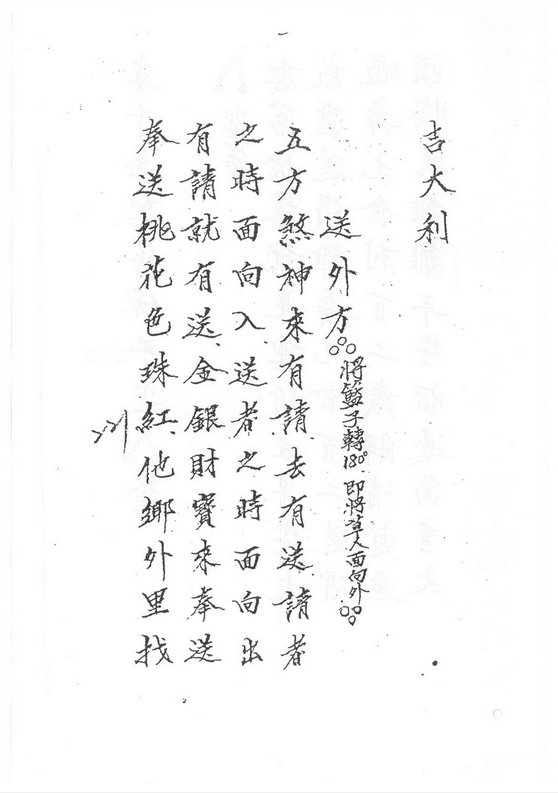 吉大利
送外方
將籃子轉180°即將草人面向外
五方煞神來有請去有送請者
之時面向入送者之時面向出
有請就有送金銀財寶來奉送
奉送桃花色珠紅他鄉外里找